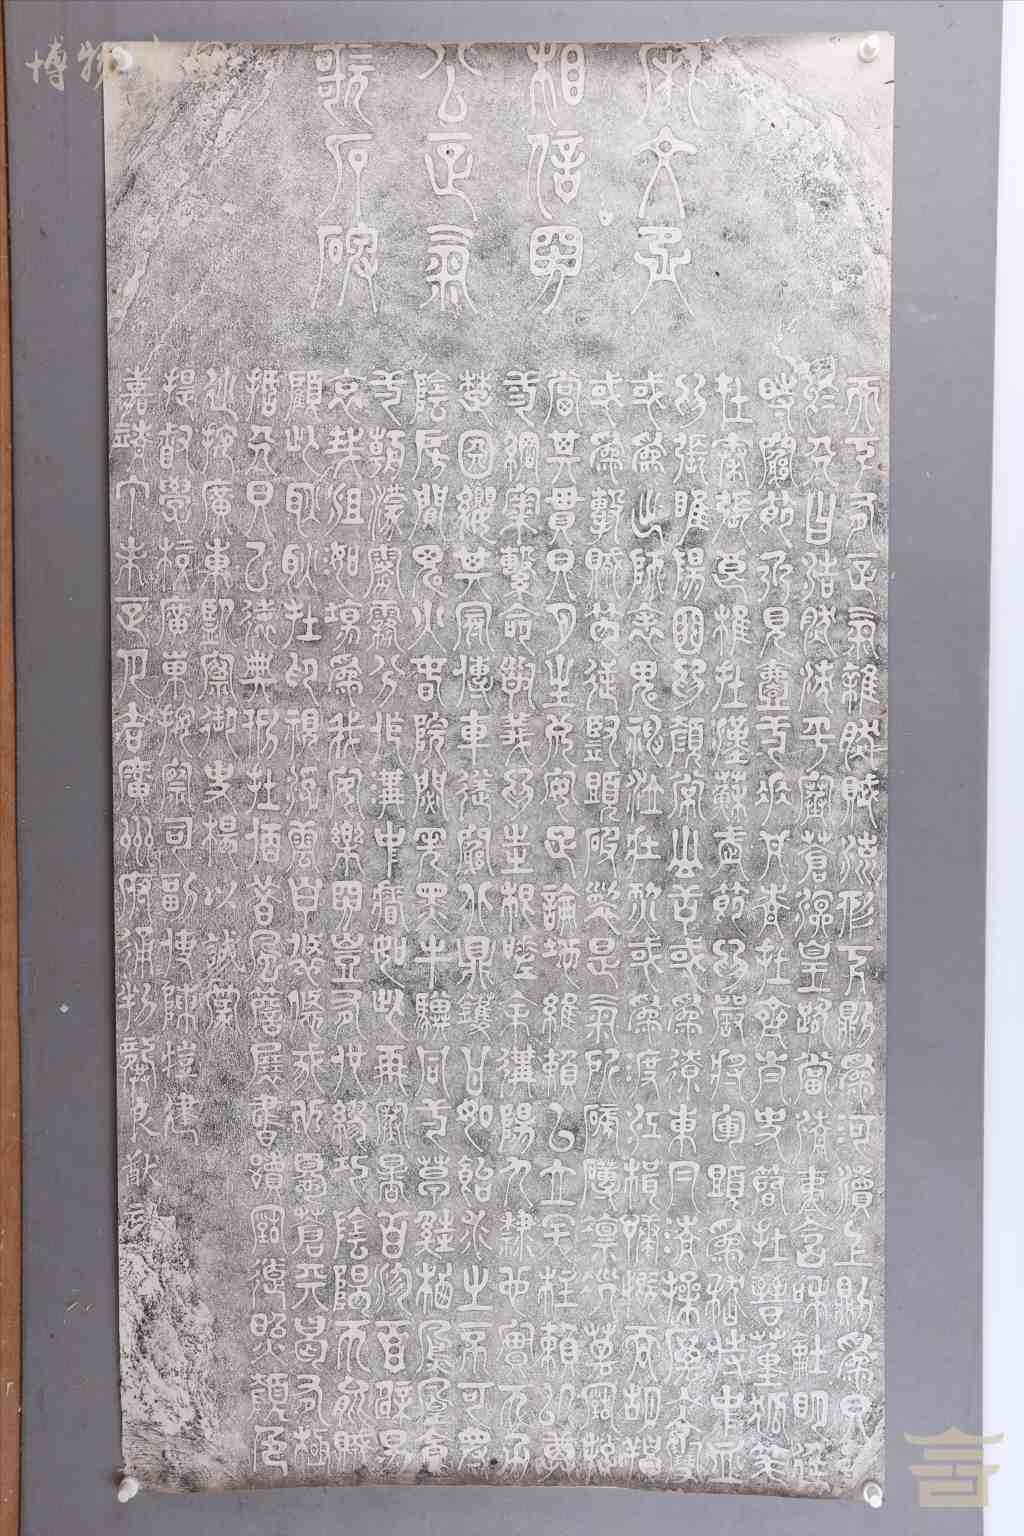 宋文丞
相信國
公正氣
歌石碑
天地有正氣雜然賦流形下則為河瀆上則為日星
於人曰浩然沛乎塞蒼溟皇路當清夷含和吐明廷
時窮節乃見一一垂丹青在齊太史簡在晉董狐筆
在秦張良椎在漢蘇武節為嚴將軍頭為嵇侍中血
為張睢陽齒為顏常山舌或為遼東帽清操厲冰雪
或為出師表鬼神泣壯烈或為渡江楫慷慨吞胡羯
或為擊賊笏逆豎頭破裂是氣所磅礴凜烈萬古存
當其貫日月生死安足論地維賴以立天柱賴以尊
三綱實繫命道義為之根嗟余遘陽九隸也實不力
楚囚纓其冠傳車送窮北鼎鑊甘如飴求之不可得
陰房闃鬼火春院閟天黑牛驥同一皂雞棲鳳凰食
一朝濛霧露分作溝中瘠如此再寒暑百沴自辟易
哀哉沮洳場為我安樂國豈有他繆巧陰陽不能賊
顧此耿耿在仰視浮雲白悠悠我心憂蒼天曷有極
哲人日已遠典刑在夙昔風簷展書讀古道照顏色
巡按廣東監察御史楊以誠篆
提督學校廣東按察司副使陳塏建
嘉靖丁未正月吉廣州府通判龔良猷